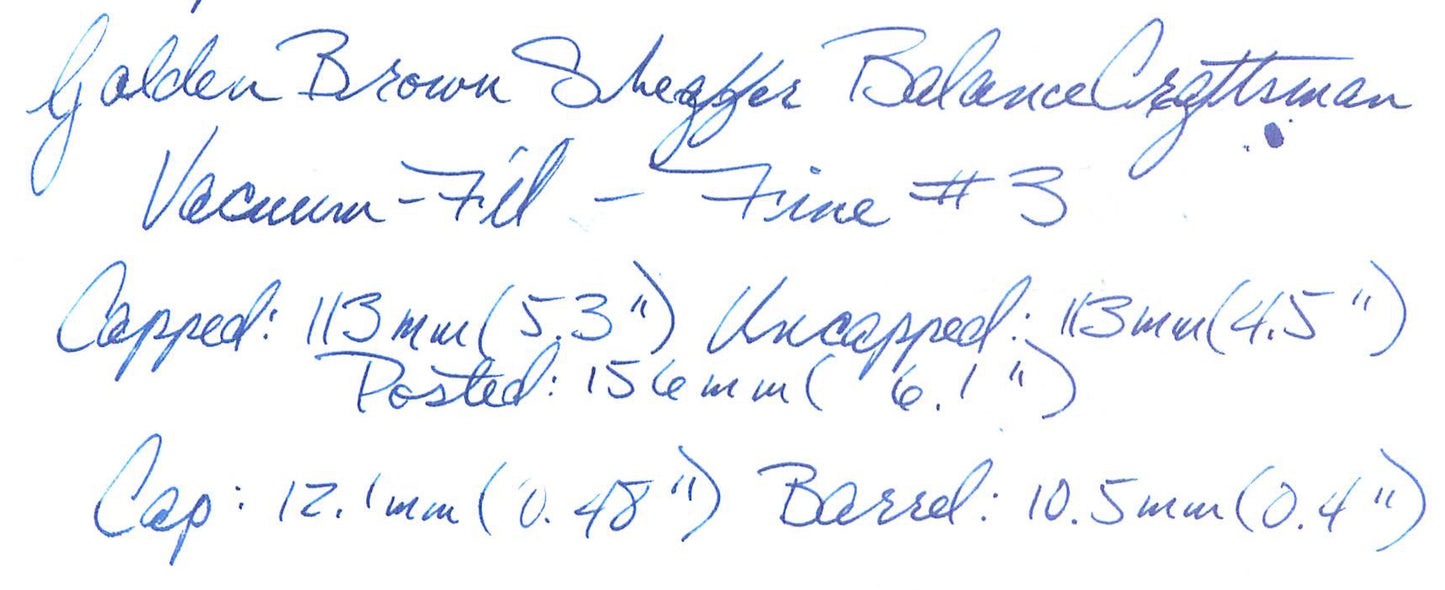 Golden Brown Sheaffer Balance Craftsman
Vacuum-Fil - Fine #3
Capped: 113mm(5.3") Uncapped: 113mm(4.5")
Posted: 156mm( 6.1")
Cap: 12.1mm(0.48") Barrel: 10.5mm(0.4")